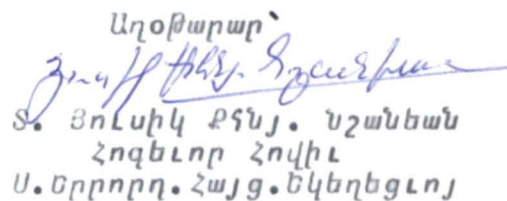 Աղօթարար՝
Տ. Յուսիկ Քհնյ. Նշանեան
Հոգեւոր Հովիւ
Ս. Երրորդ. Հայց. Եկեղեցւոյ